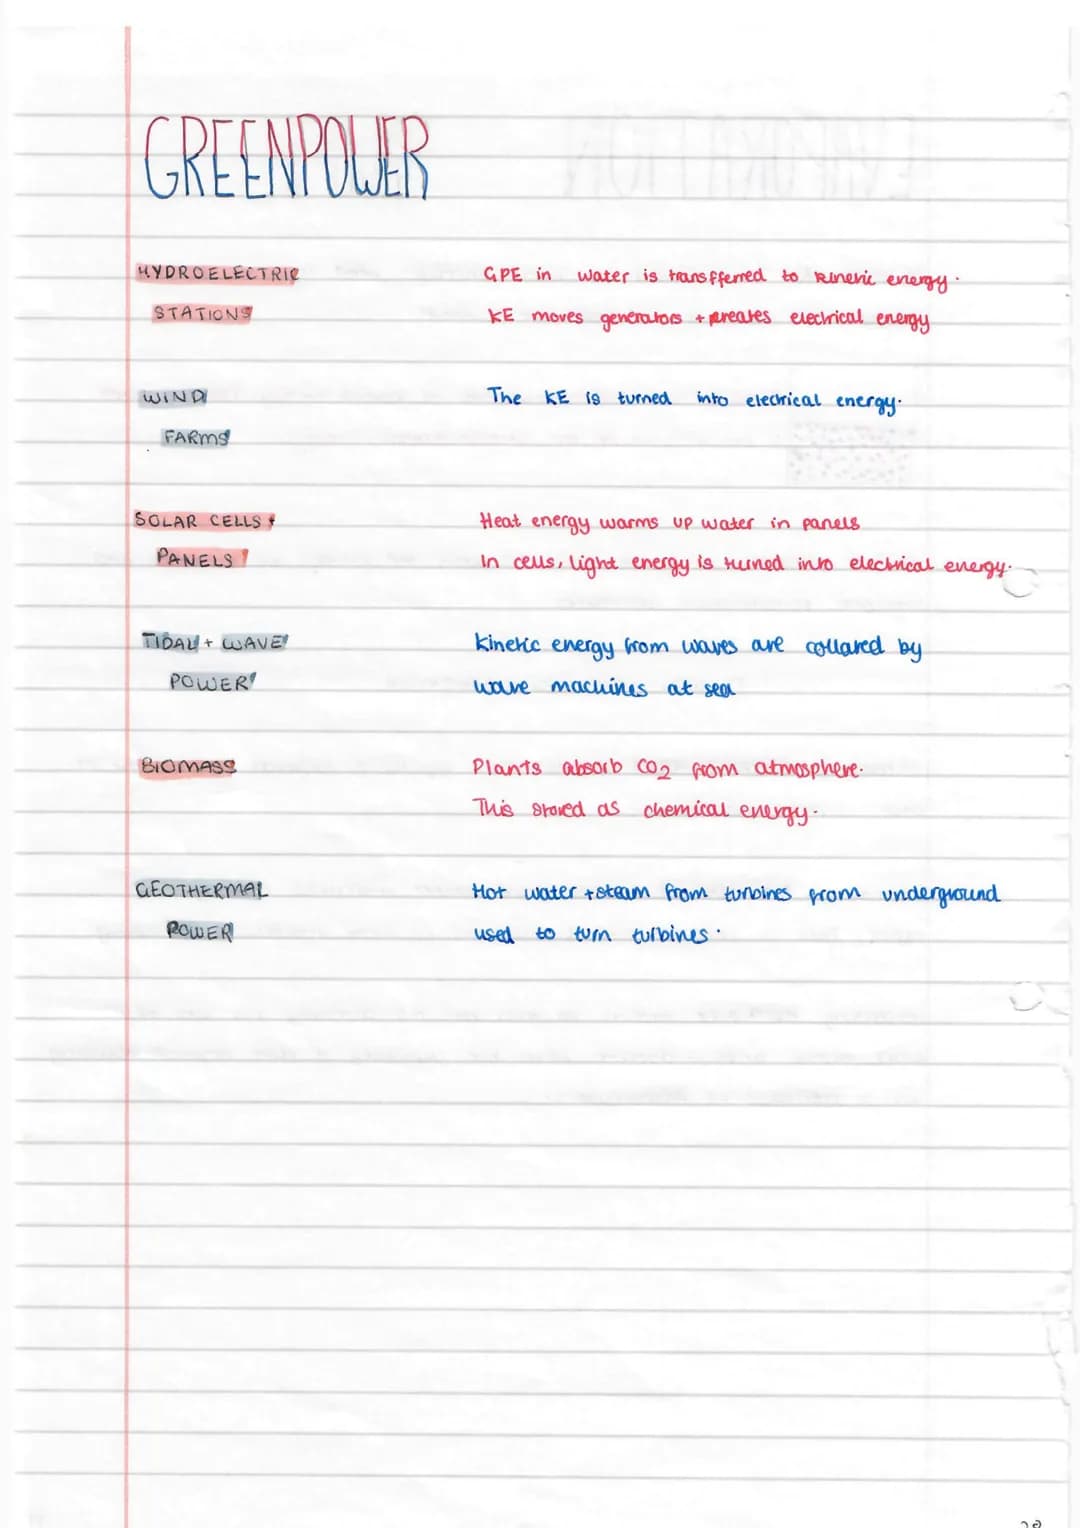 GREENPOWER
HYDROELECTRIC GPE in water is transfferred to kinetic energy.
STATIONS KE moves generators + creates electrical energy
WIND The KE is turned into electrical energy.
FARMS
SOLAR CELLS + Heat energy warms up water in panels
PANELS In cells, light energy is turned into electrical energy.
TIDAL + WAVE Kinetic energy from waves are collared by
POWER wave machines at sea
BIOMASS Plants absorb CO2 from atmosphere.
This stored as chemical energy.
GEOTHERMAL Hot water + steam from turbines from underground
POWER used to turn turbines.